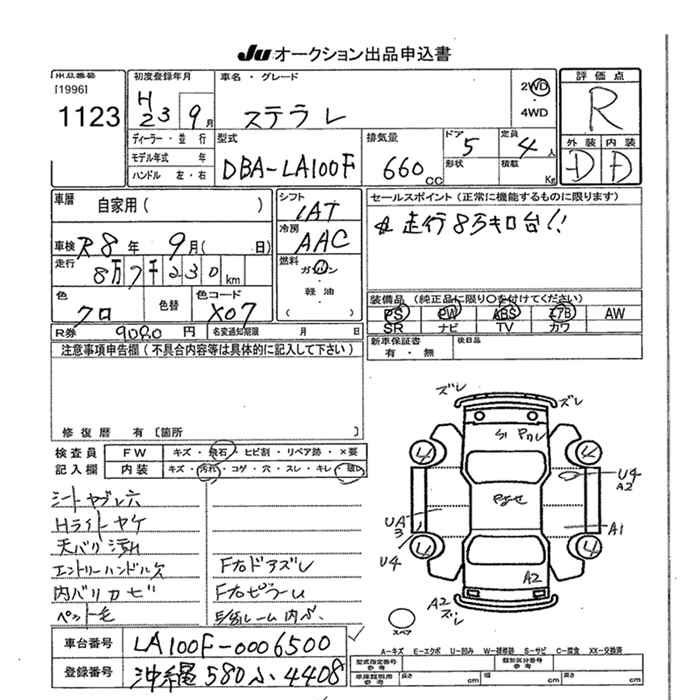 JU オークション出品申込書
出品番号
[1996]
1123
初度登録年月
H23 9月
車名・グレード
ステラ L
2WD
・
4WD
評価点
R
ディーラー・並行
モデル年式 年
ハンドル 左・右
型式
DBA-LA100F
排気量
660cc
ドア
5
形状
定員
4人
積載
Kg
外装 内装
D D
車歴
自家用( )
シフト
IAT
セールスポイント(正常に機能するものに限ります)
走行8万キロ台!!
車検 R8年 9月( 日)
冷房
AAC
走行
8万7千230km
燃料
ガソリン
・
軽油
・
( )
色
クロ
色替
色コード
X07
装備品(純正品に限り○を付けてください)
PS PW ABS エアB AW
SR ナビ TV カワ
R券 9080円
名変通知期限 月 日
新車保証書
有・無
後日品
注意事項申告欄(不具合内容等は具体的に記入して下さい)
修復歴 有〔箇所 〕
検査員
記入欄
FW キズ・飛石・ヒビ割・リペア跡・×要
内装 キズ・汚れ・コゲ・穴・スレ・キレ・破レ
シートヤブレ穴
Hライトヤケ
天バリ汚れ
エントリーハンドル欠
内バリカビ
ペット毛
F右ドアズレ
F右ピラーU
ズレ
ズレ
U4
A2
A1
UA
3
U4
A2
A2
ズレ
スペア
車台番号 LA100F-0006500
登録番号 沖縄 580 ふ 4408
A-キズ E-エクボ U-凹み W-補修跡 S-サビ C-腐食 XX-交換済
型式指定番号
参考
類別区分番号
参考
車庫証明用
参考
長さ cm 幅 cm 高さ cm